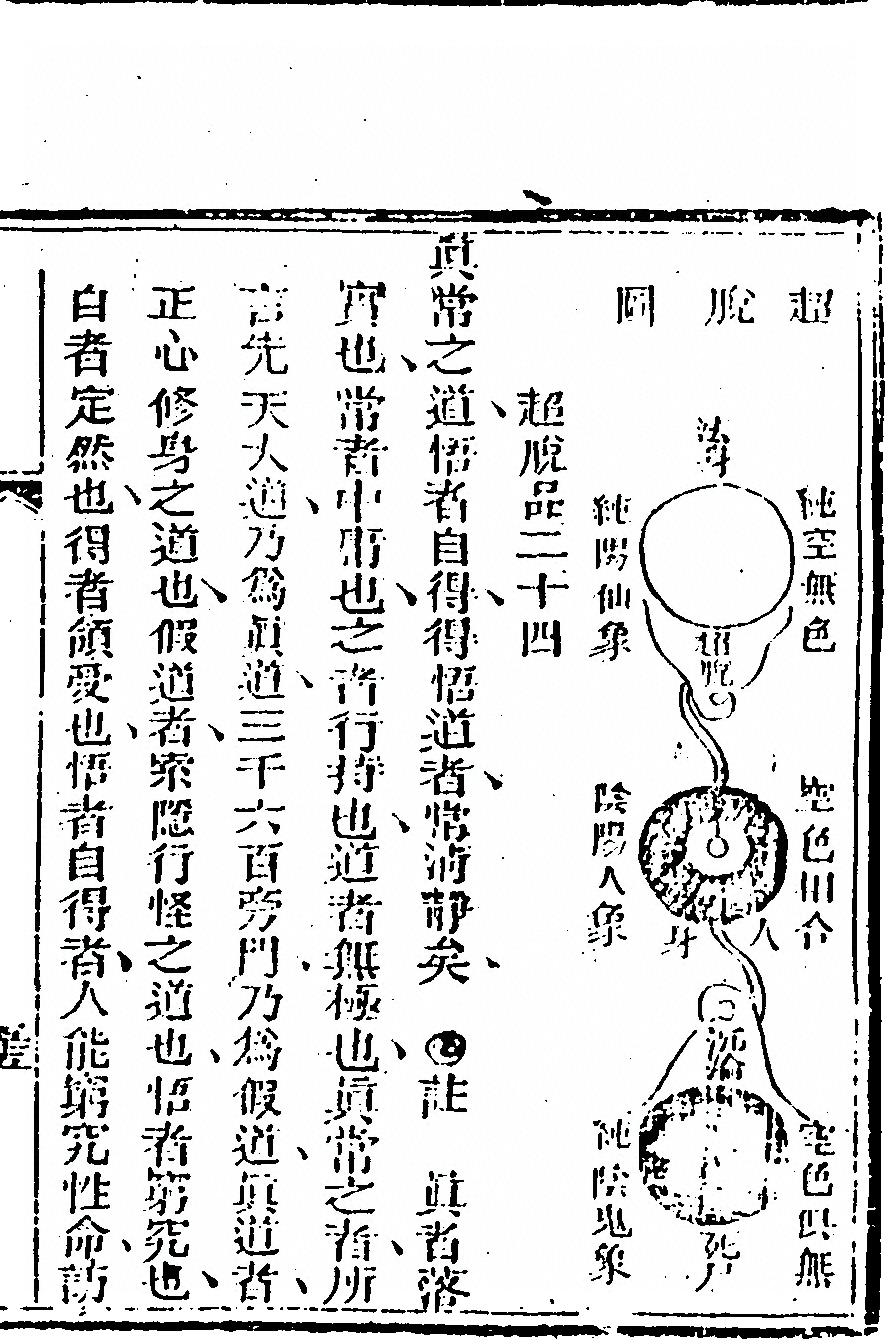 超脫圖
法身
純空無色
純陽仙象
超脫
空色相合
陰陽人象
人身
沉淪
空色俱無
純陰鬼象
死尸
超脫品二十四
眞常之道悟者自得得悟道者常淸靜矣 註 眞者落
實也常者中庸也之者行持也道者無極也眞常之者所
言先天大道乃爲眞道三千六百旁門乃爲假道眞道者
正心修身之道也假道者索隱行怪之道也悟者窮究也
自者定然也得者領受也悟者自得者人能窮究性命訪